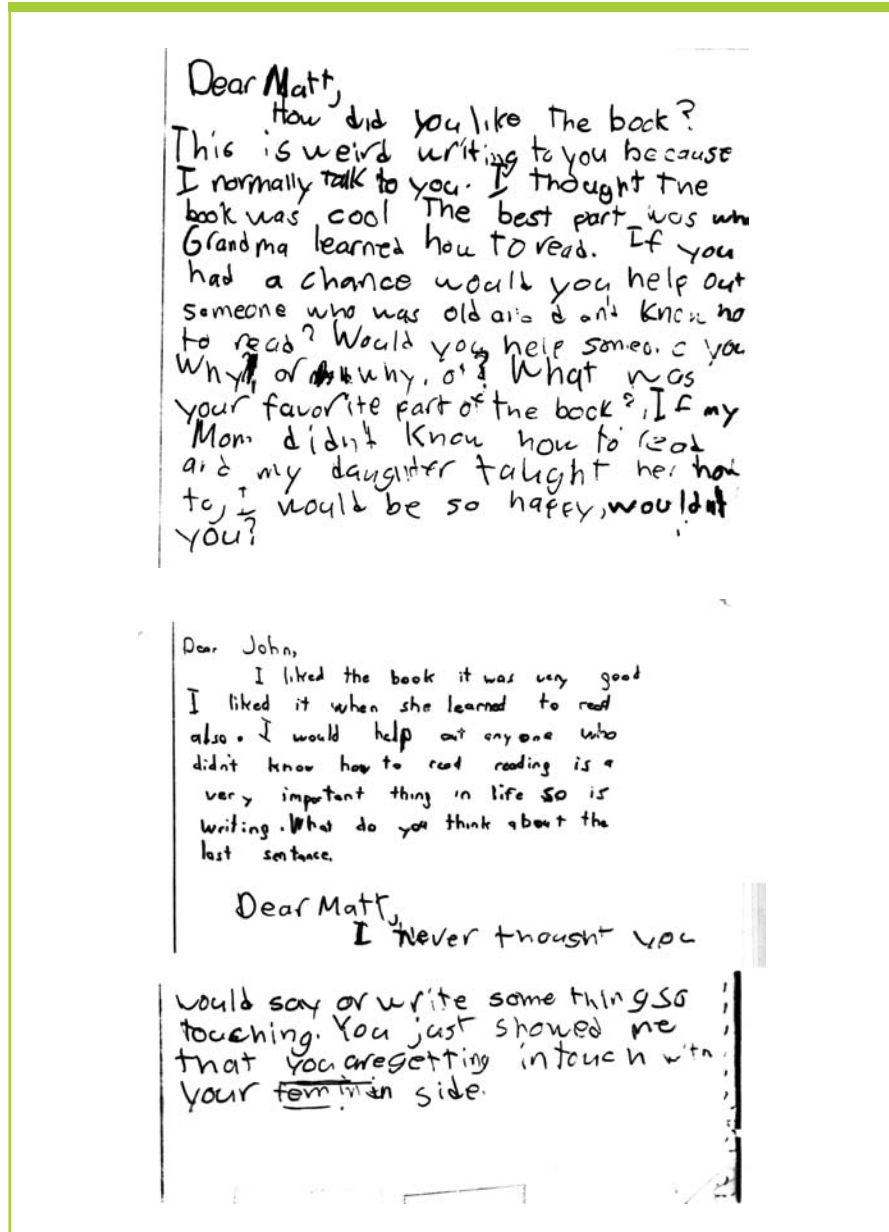 Dear Matt,
How did you like The book?
This is weird writing to you because
I normally talk to you. I thought the
book was cool The best part was wh
Grandma learned how to read. If you
had a chance would you help out
someone who was old and know ho
to read? Would you help you
Why, or why, ot? What was
your favorite part of the book?, If my
Mom didn't know how to read
and my daughter taught her how
to, I would be so happy, wouldnt
you?
Dear John,
I liked the book it was very good
I liked it when she learned to read
also. I would help out any one who
didn't know how to read reading is a
very important thing in life so is
writing. What do you think about the
last sentance.
Dear Matt,
I Never thought you
would say or write some thing so
touching. You just showed me
that you are getting in touch with
your side.